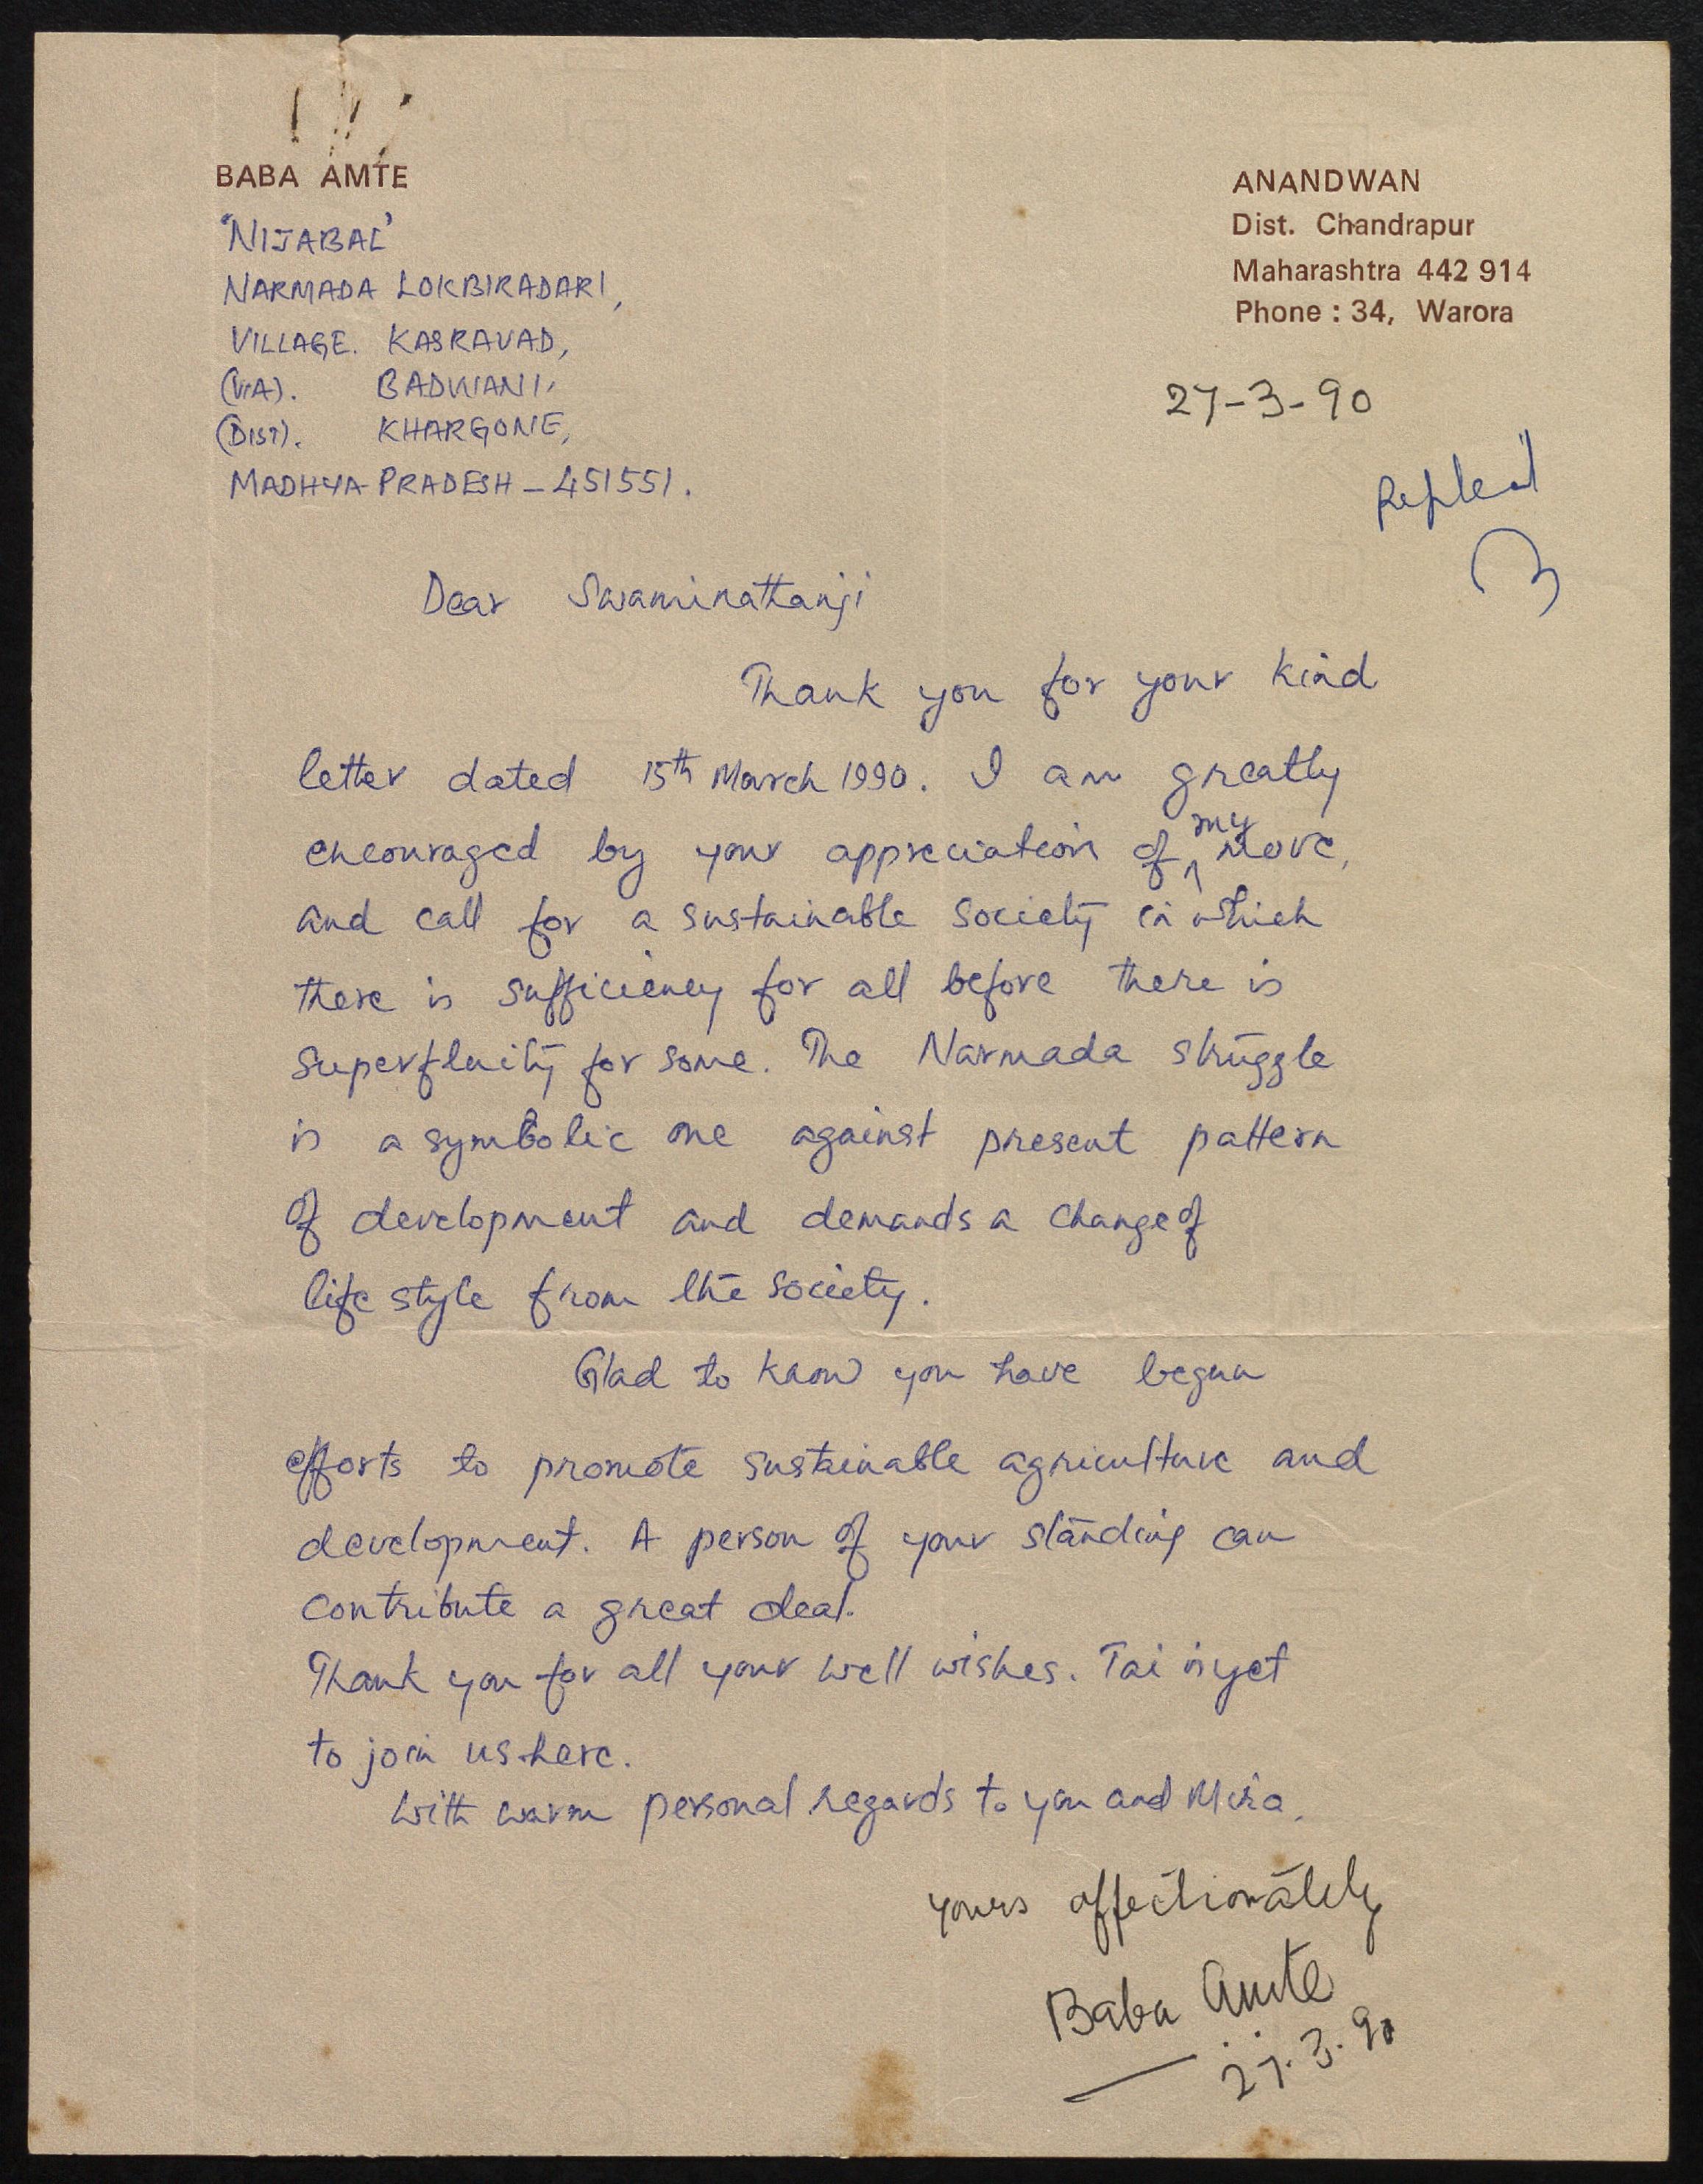 BABA AMTE
'NIJABAL'
NARMADA LOKBIRADARI,
VILLAGE. KASRAVAD,
(VIA). BADWANI,
(DIST). KHARGONE,
MADHYA PRADESH - 451551.
ANANDWAN
Dist. Chandrapur
Maharashtra 442 914
Phone : 34, Warora
27-3-90
Replied
Dear Swaminathanji
Thank you for your kind
letter dated 15th March 1990. I am greatly
encouraged by your appreciation of my move,
and call for a sustainable society in which
there is sufficiency for all before there is
superfluity for some. The Narmada struggle
is a symbolic one against present pattern
of development and demands a change of
life style from the society.
Glad to know you have begun
efforts to promote sustainable agriculture and
development. A person of your standing can
contribute a great deal.
Thank you for all your well wishes. Tai is yet
to join us here.
With warm personal regards to you and Mira.
Yours affectionately
Baba Amte
27.3.90